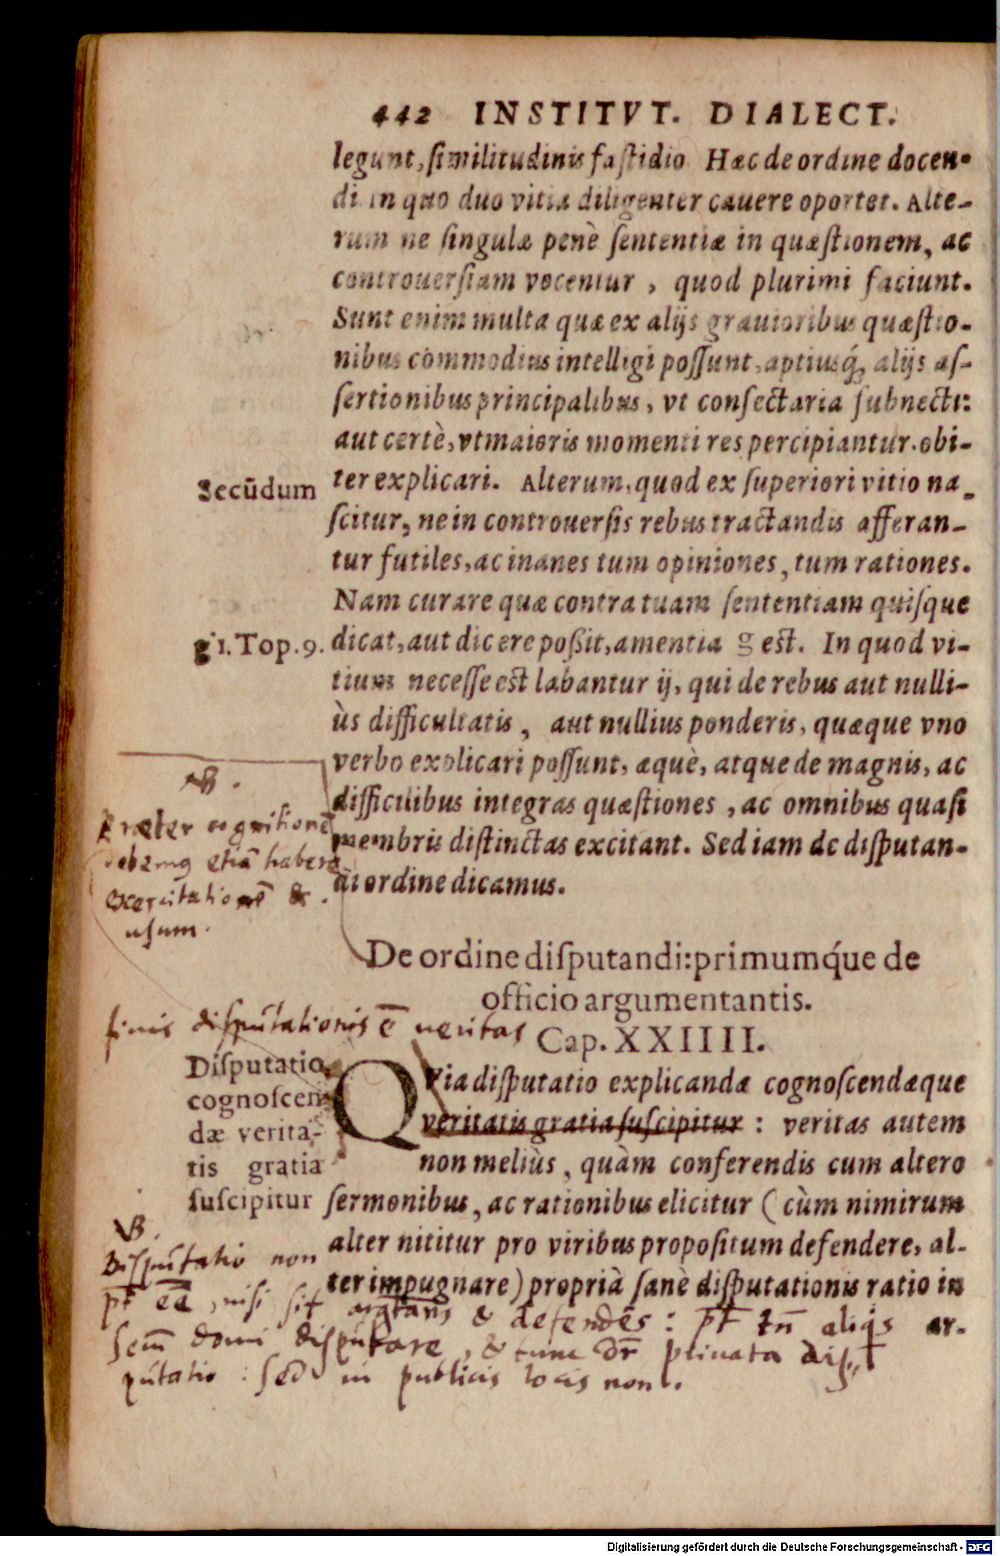 442 INSTITVT. DIALECT.
legunt, similitudinis fastidio Hæc de ordine docen-
di in quo duo vitia diligenter cauere oportet. Alte-
rum ne singulæ penè sententiæ in quæstionem, ac
controuersiam vocentur, quod plurimi faciunt.
Sunt enim multa quæ ex alijs grauioribus quæstio-
nibus commodius intelligi possunt, aptiusq́, alijs as-
sertionibus principalibus, vt consectaria subnecti:
aut certè, vt maioris momenti res percipiantur. obi-
Secūdum
ter explicari. Alterum, quod ex superiori vitio na-
scitur, ne in controuersis rebus tractandis afferan-
tur futiles, ac inanes tum opiniones, tum rationes.
Nam curare quæ contra tuam sententiam quisque
g 1. Top. 9.
dicat, aut dicere possit, amentia g est. In quod vi-
tium necesse est labantur ij, qui de rebus aut nulli-
ùs difficultatis, aut nullius ponderis, quæque vno
verbo explicari possunt, æquè, atque de magnis, ac
difficilibus integras quæstiones, ac omnibus quasi
membris distinctas excitant. Sed iam de disputan-
di ordine dicamus.
Præter cognitionē
debemꝰ etiā habere
exercitationē &
usum.
De ordine disputandi: primumq́ue de
officio argumentantis.
finis disputationis ē veritas
Cap. XXIIII.
Disputatio
cognoscen
dæ verita-
tis gratia
suscipitur
QVia disputatio explicandæ cognoscendæque
veritatis gratia suscipitur: veritas autem
non meliùs, quàm conferendis cum altero
sermonibus, ac rationibus elicitur (cùm nimirum
alter nititur pro viribus propositum defendere, al-
ter impugnare) proprià sanè disputationis ratio in
Disputatio non
pt̄ eē, nisi sit & defendēs: pt̄ tn̄ aliqs
secū domi disputare, & tunc dr̄ privata dis-
putatio: sed in publicis locis non.
Digitalisierung gefördert durch die Deutsche Forschungsgemeinschaft - DFG